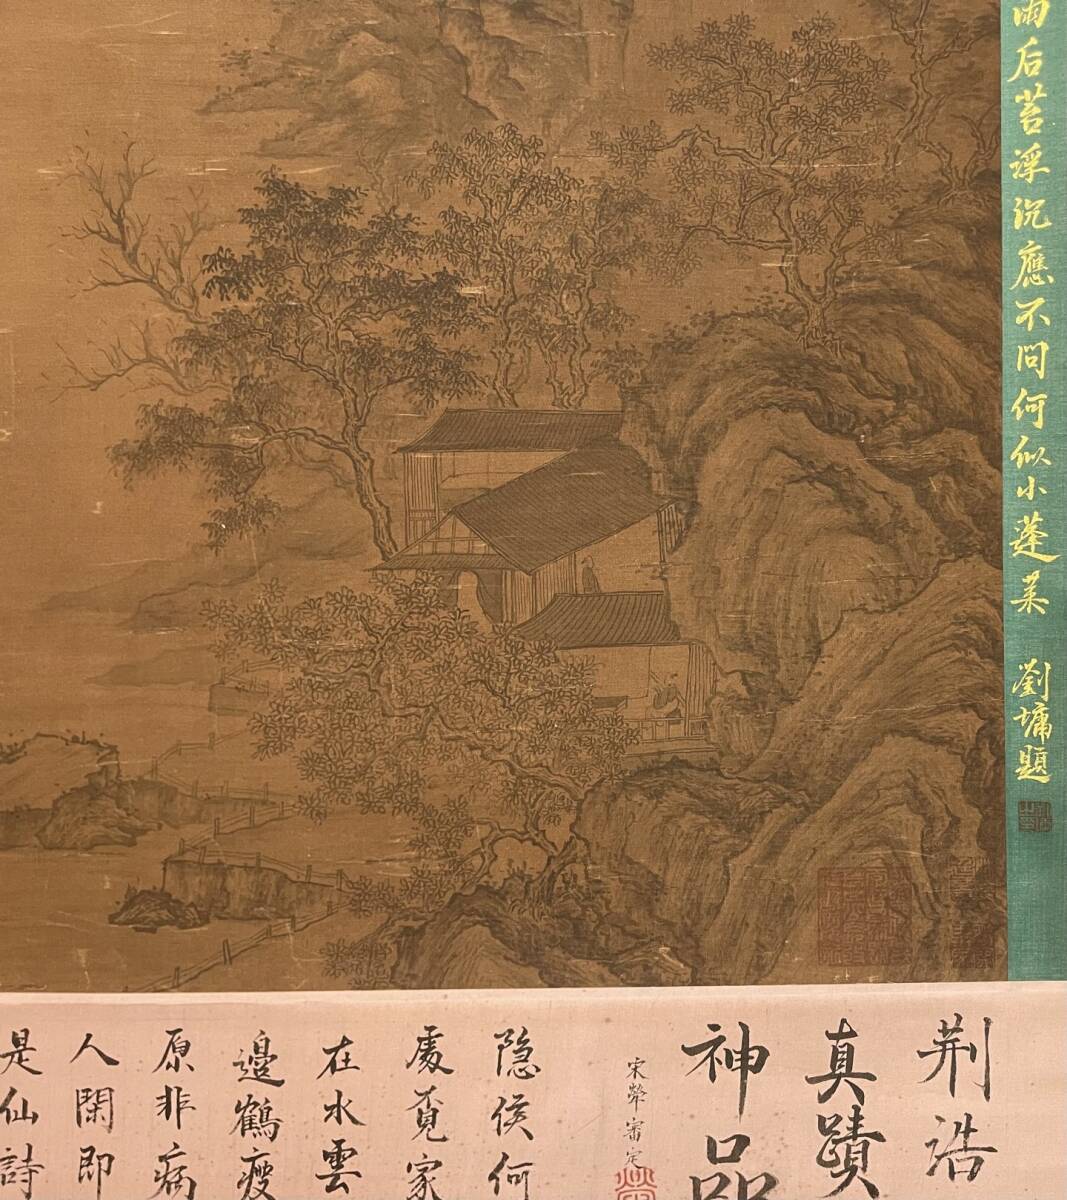 雨后苔浮沉應不問何似小蓬萊
劉墉題
荆浩
真蹟
神品
宋犖審定
隐侯何
處覔家
在水雲
邉鶴瘦
原非病
人閑即
是仙詩